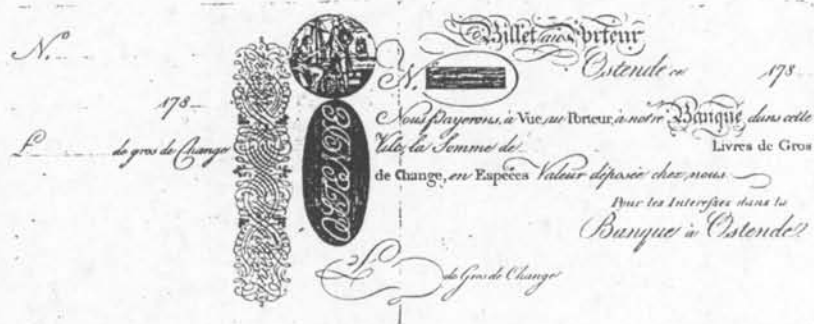 N.º
178
L de gros de Change
OSTENDE
Billet au Porteur
N.º
Ostende ce 178
Nous Payerons, à Vue, au Porteur, à notre Banque, dans cette
Ville, la Somme de Livres de Gros
de Change, en Espèces Valeur déposée chez nous
Pour les Interesses dans la
Banque à Ostende
L de Gros de Change